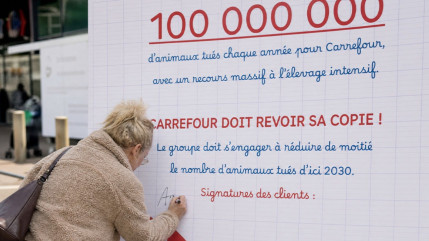 100 000 000
d'animaux tués chaque année pour Carrefour,
avec un recours massif à l'élevage intensif.
CARREFOUR DOIT REVOIR SA COPIE !
Le groupe doit s'engager à réduire de moitié
le nombre d'animaux tués d'ici 2030.
Signatures des clients :